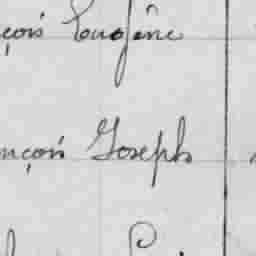 çois Eugène
nçois Joseph